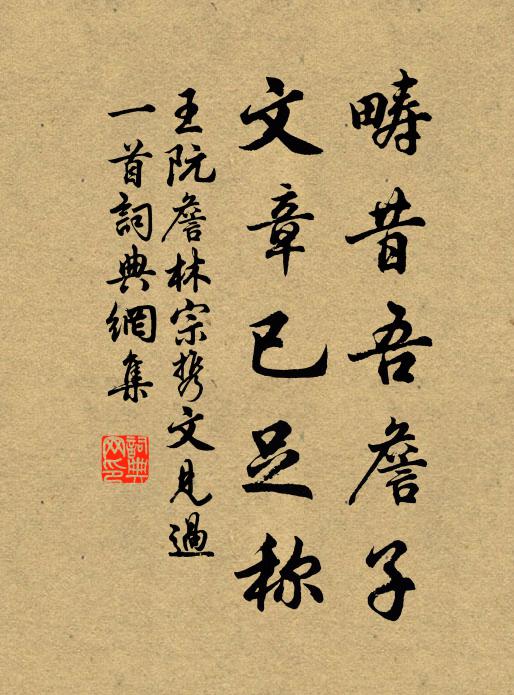 疇昔吾詹子
文章已足称
王阮詹林宗携文見過
一首詞典網集
詞典
网印